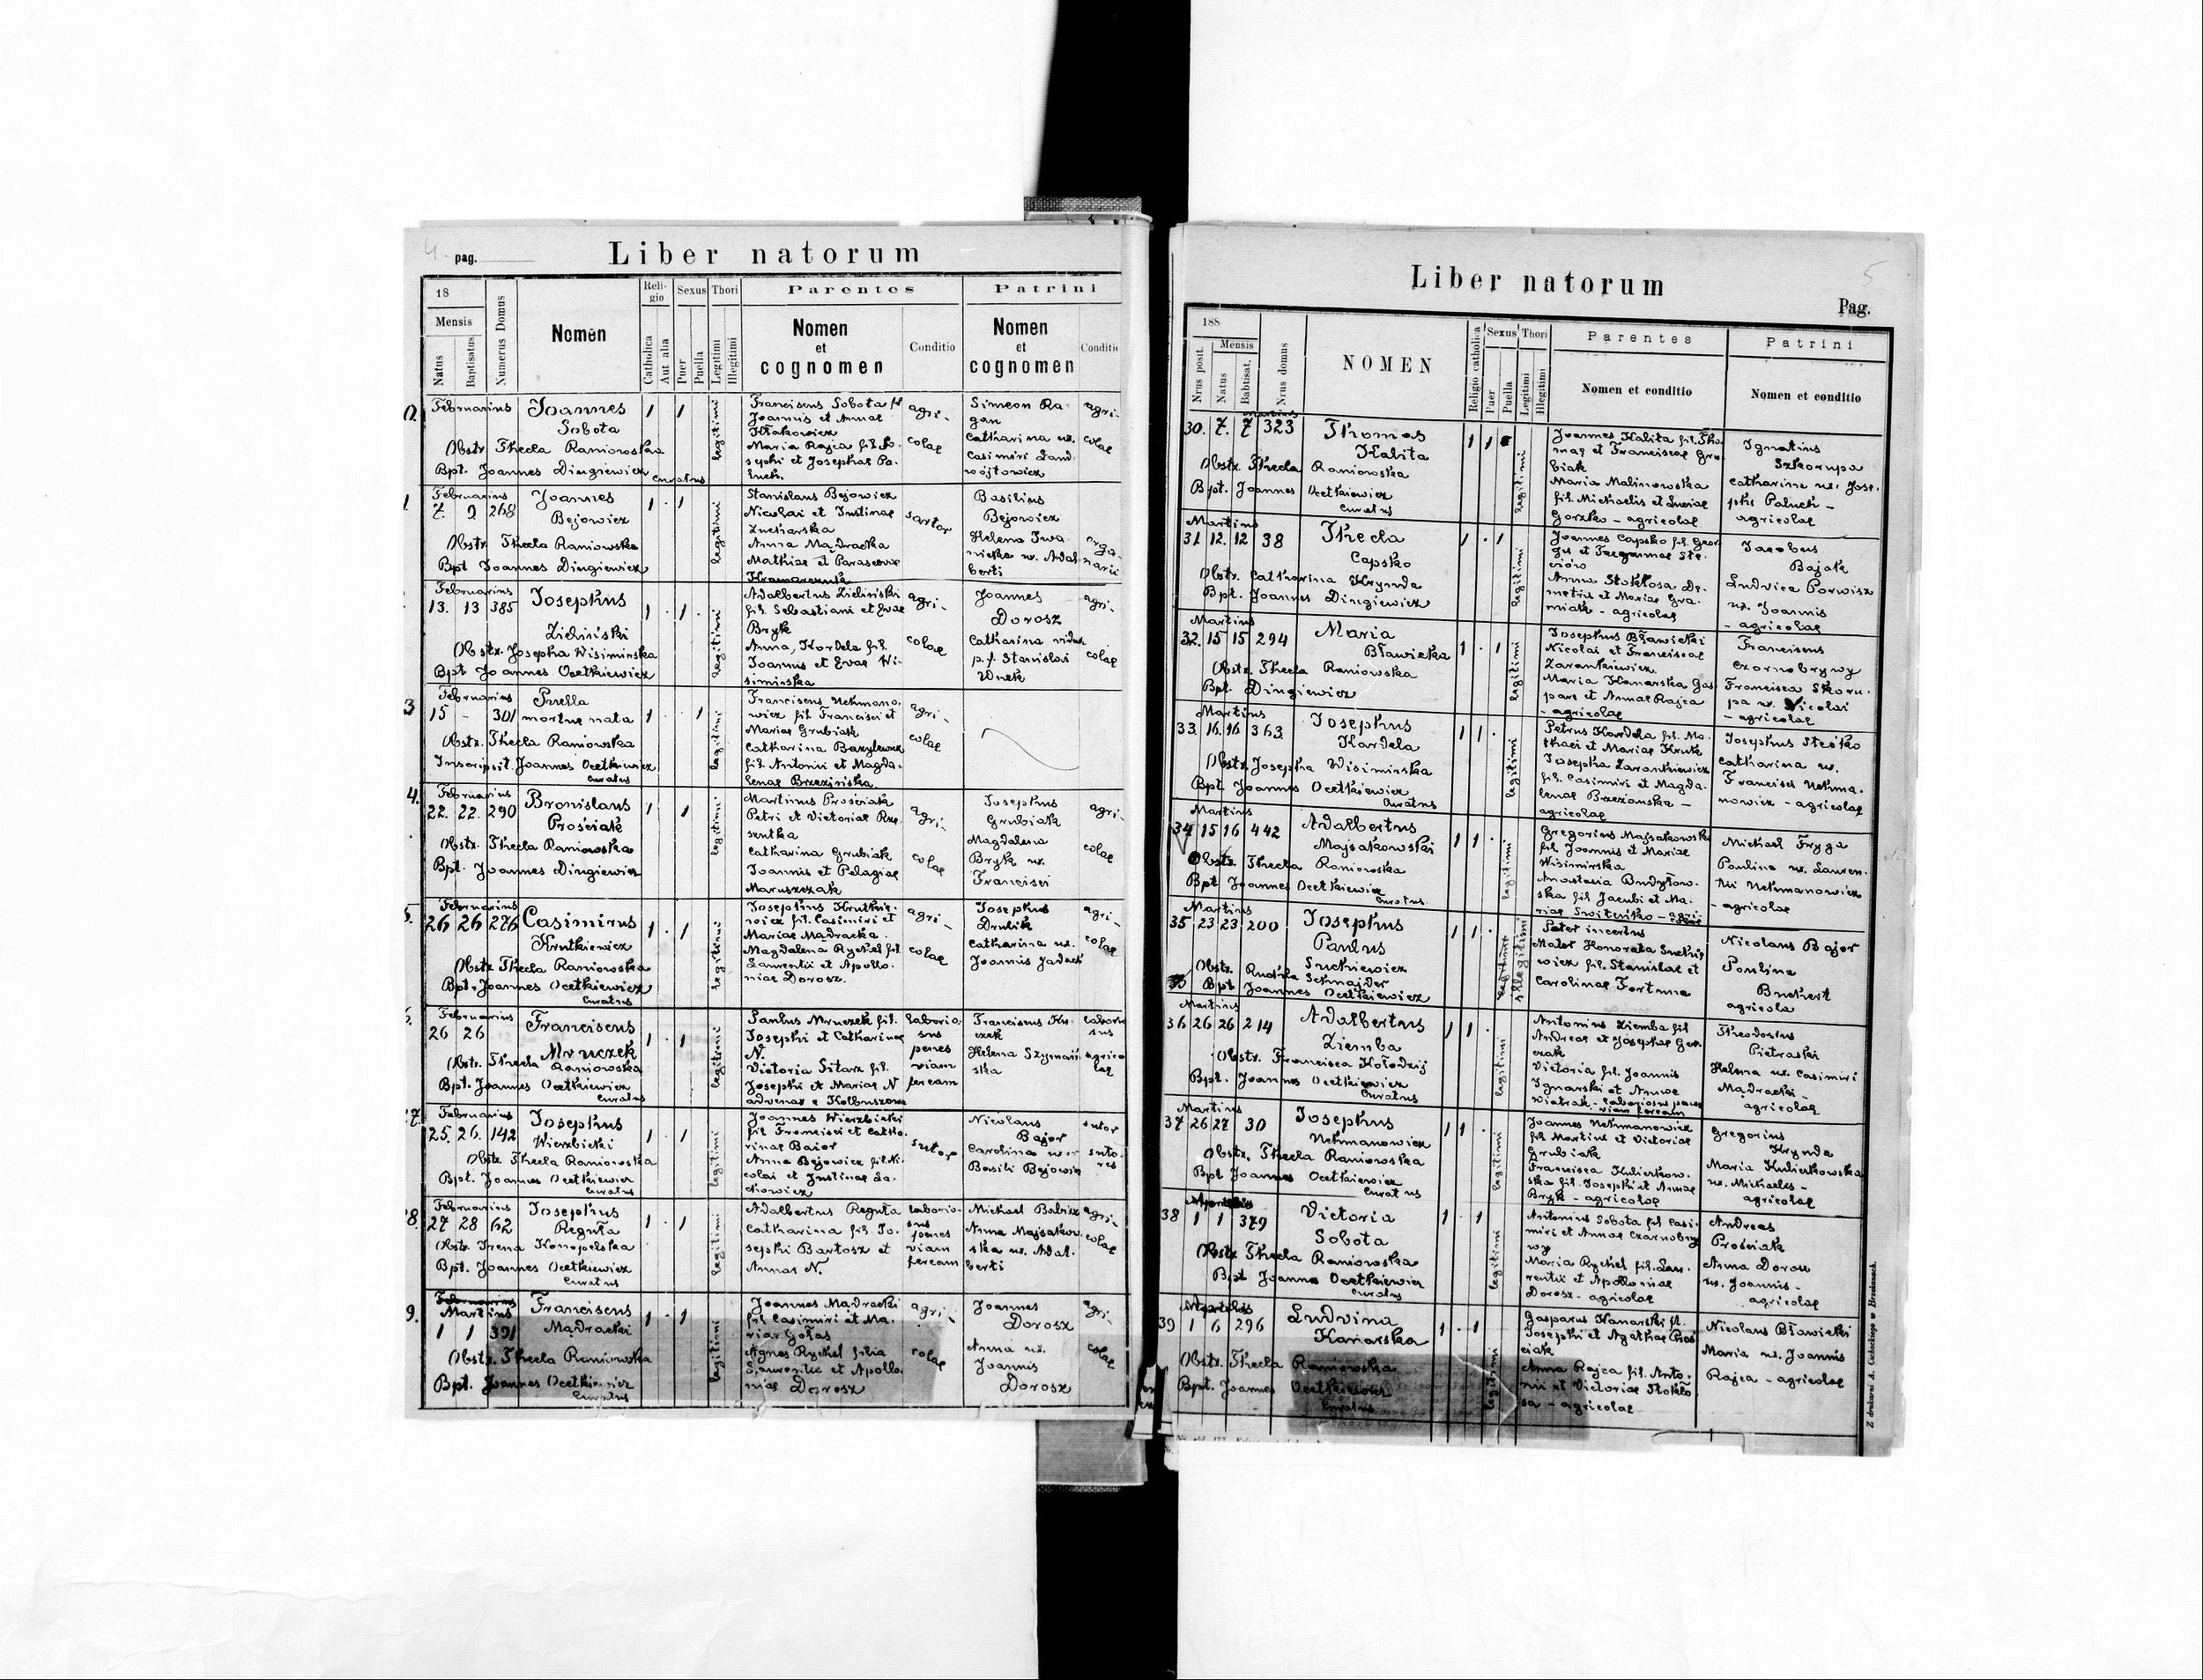 4
pag.
Liber natorum
18
Mensis
Natus
Baptisatus
Numerus Domus
Nomen
Reli-
gio
Catholica
Aut alia
Sexus
Puer
Puella
Thori
Legitimi
Illegitimi
Parentes
Nomen
et
cognomen
Conditio
Patrini
Nomen
et
cognomen
Conditio
Februarius
Joannes
Sobota
1
1
legitimi
Obstr. Thecla Raniowska
Bpt. Joannes Dingiewicz
curatus
Franciscus Sobota fil
Joannis et Annae
Kłakowicz
Maria Rajca fil. Jo-
sephi et Josephae Pa-
luch.
agri-
colae
Simeon Ra-
gan
Catharina ux.
Casimiri Land-
wójtowicz
agri-
colae
1
Februarius
7. 9 268
Joannes
Bejowicz
1 1
legitimi
Obstr. Thecla Raniowska
Bpt Joannes Dingiewicz
Stanislaus Bejowicz
Nicolai et Justinae
Anna Mądracka
Mathiae et Parascevae
sartor
Basilius
Bejowicz
Helena Iwa-
nicka ux. Adal-
berti
Februarius
13. 13 385
Josephus
Zieliński
1 1
legitimi
Obstr. Josepha Wisimirska
Bpt Joannes Ocetkiewicz
Adalbertus Zieliński
fil. Sebastiani et Evae
Bryk
Anna, Kordela fil.
Joannis et Evae Wi-
simirska
agri-
colae
Joannes
Dorosz
Catharina vidua
p. f. Stanislai
Wnek
agri-
colae
3
Februarius
15 - 301
Puella
mortue nata
1 1
legitimi
Obstr. Thecla Raniowska
Inscripsit. Joannes Ocetkiewicz
curatus
Franciscus Uchmano-
wicz fil Francisci et
Mariae Grubiak
Catharina Bazylewicz
fil. Antonii et Magda-
lenae Brzezińska.
agri-
colae
4.
Februarius
22. 22. 290
Bronislaus
Prościak
1 1
legitimi
Obstr. Thecla Raniowska
Bpt. Joannes Dingiewicz
Martinus Prościak
Petri et Victoriae Rze-
sentka
Catharina Grubiak
Joannis et Pelagiae
Maruszczak
agri-
colae
Josephus
Grubiak
Magdalena
Bryk ux.
Francisci
agri-
colae
5.
Februarius
26 26 276
Casimirus
Krutkiewicz
1 1
legitimi
Obstr Thecla Raniowska
Bpt. Joannes Ocetkiewicz
Curatus
Josephus Krutkie-
wicz fil. Casimiri et
Mariae Mądracka.
Magdalena Rychel fil.
Laurentii et Apollo-
niae Dorosz.
agri-
colae
Josephus
Drulik
Catharina ux.
Joannis Jadach
agri-
colae
Februarius
26 26
Franciscus
Mruczek
1 1
legitimi
Obstr. Thecla Raniowska
Bpt. Joannes Ocetkiewicz
Curatus
Paulus Mruczek fil.
Josephi et Catharinae
N.
Victoria Sitarz fil.
Josephi et Mariae N
advenae e Kolbuszowa
laborio-
sus
penes
viam
ferream
Franciscus Ku-
czek
Helena Szymań-
ska
agrico
lae
7.
Februarius
25. 26. 142
Josephus
Wierzbicki
1 1
legitimi
Obstr. Thecla Raniowska
Bpt. Joannes Ocetkiewicz
Curatus
Joannes Wierzbicki
fil Francisci et Catha-
rinae Baior
Anna Bejowicz fil. Ni-
colai et Justinae
sutor
Nicolaus
Bajor
Carolina uxor
Basili Bejowicz
sutor
suto-
res
8.
Februarius
27 28 62
Josephus
Reguła
1 1
legitimi
Obstr. Irena Konopelska
Bpt. Joannes Ocetkiewicz
Curatus
Adalbertus Reguła
Catharina fil. Jo-
sephi Bartosz et
Annae N.
laborio-
sus
penes
viam
ferream
Michael Babisz
Anna Majsakow-
ska ux. Adal-
berti
agri-
colae
9.
Februarius
Martius
1 1 391
Franciscus
Mądracki
1 1
legitimi
Obstr. Thecla Raniowska
Bpt. Joannes Ocetkiewicz
Curatus
Joannes Mądracki
fil Casimiri et Ma-
riae Gołas
Agnes Rychel filia
Laurentii et Apollo-
niae Dorosz
agri-
colae
Joannes
Dorosz
Anna ux.
Joannis
Dorosz
agri-
colae
Liber natorum
5
Pag.
188
Nrus posit.
Mensis
Natus
Babtisat.
Nrus domus
NOMEN
Religio catholica
Sexus
Puer
Puella
Thori
Legitimi
Illegitimi
Parentes
Nomen et conditio
Patrini
Nomen et conditio
Martius
30. 7. 7 323
Thomas
Kalita
1 1
legitimi
Obstr. Thecla Raniowska
Bpt. Joannes Ocetkiewicz
Curatus
Joannes Kalita fil. Tho-
mae et Franciscae Gru-
biak
Maria Malinowska
fil. Michaelis et Luciae
Gorzko - agricolae
Ignatius
Szkorupa
Catharina ux. Jose-
phi Paluch -
agricolae
Martius
31 12. 12 38
Thecla
Capsko
1 1
legitimi
Obstr. Catharina Krynda
Bpt. Joannes Dingiewicz
Joannes Capsko fil. Geor-
gii et
Anna Stokłosa De-
metrii et Mariae Gra-
miak - agricolae
Jacobus
Bajak
Ludvica Porwisz
ux. Joannis
- agricolae
Martius
32. 15 15 294
Maria
Bławicka
1 1
legitimi
Obstr. Thecla Raniowska
Bpt. Dingiewicz
Josephus Bławicki
Nicolai et Franciscae
Zarankiewicz
Maria Kanarska Gas-
pari et Annae Rajca
- agricolae
Franciscus
Czarnobrywy
Francisca Skoru-
pa ux. Nicolai
- agricolae
Martius
33. 16. 16 363
Josephus
Kordela
1 1
legitimi
Obstr. Josepha Wisimirska
Bpt. Joannes Ocetkiewicz
Curatus
Petrus Kordela fil. Ma-
thaei et Mariae Kruk
Josepha Zarankiewicz
fil. Casimiri et Magda-
lenae Brzezanska -
agricolae
Josephus Stećko
Catharina ux.
Francisci Uchma-
nowicz - agricolae
Martius
34 15 16 442
Adalbertus
Majsakowski
1 1
legitimi
Obstr. Thecla Raniowska
Bpt Joannes Ocetkiewicz
Curatus.
Gregorius Majsakowski
fil Joannis et Mariae
Wisimirska
Anastasia Budyłow-
ska fil Jacubi et Ma-
riae Switeńko - agri-
Michael Fryga
Paulina ux. Lauren-
tii Uchmanowicz
- agricolae
Martius
35 23 23 200
Josephus
Paulus
Suckiewicz
1 1
legitimi
Illegitimi
Obstr. Ruchla Schnajder
Bpt Joannes Ocetkiewicz
Pater incertus
Mater Honorata Suckie-
wicz fil. Stanislai et
Carolinae Fortuna
Nicolaus Bajor
Paulina
Buchert
agricola
Martius
36 26 26 214
Adalbertus
Ziemba
1 1
legitimi
Obstr. Francisca Kołodzij
Bpt. Joannes Ocetkiewicz
Curatus
Antonius Ziemba fil
Andreae et Josephae Ger-
czak
Victoria fil. Joannis
Ignarski et Annae
Wiatrak - laboriosus penes
viam ferream
Theodosius
Pietraski
Helena ux. Casimiri
Mądracki -
agricolae
Martius
37 26 27 30
Josephus
Uchmanowicz
1 1
legitimi
Obstr. Thecla Raniowska
Bpt Joannes Ocetkiewicz
Curatus
Joannes Uchmanowicz
fil Martini et Victoriae
Grubiak
Francisca Kulickow-
ska fil. Josephi et Annae
Bryk - agricolae
Gregorius
Krynda
Maria Kulickowska
ux. Michaelis -
agricolae
Aprilis
38 1 1 379
Victoria
Sobota
1 1
legitimi
Obstr Thecla Raniowska
Bpt Joannes Ocetkiewicz
Curatus
Antonius Sobota fil Casi-
miri et Annae Czarnobry
wy
Maria Rychel fil. Lau-
rentii et Apolloniae
Dorosz - agricolae
Andreas
Prościak
Anna Dorosz
ux. Joannis -
agricolae
Aprilis
39 1 6 296
Ludvina
Kanarska
1 1
legitimi
Obstr. Thecla Raniowska
Bpt. Joannes Ocetkiewicz
Curatus
Gasparus Kanarski fil.
Josephi et Agathae Proś
ciak
Anna Rajca fil. Anto-
nii et Victoriae Stokło
sa - agricolae
Nicolaus Bławicki
Maria ux. Joannis
Rajca - agricolae
Z drukarni A. Cichockiego w Brzeżanach.